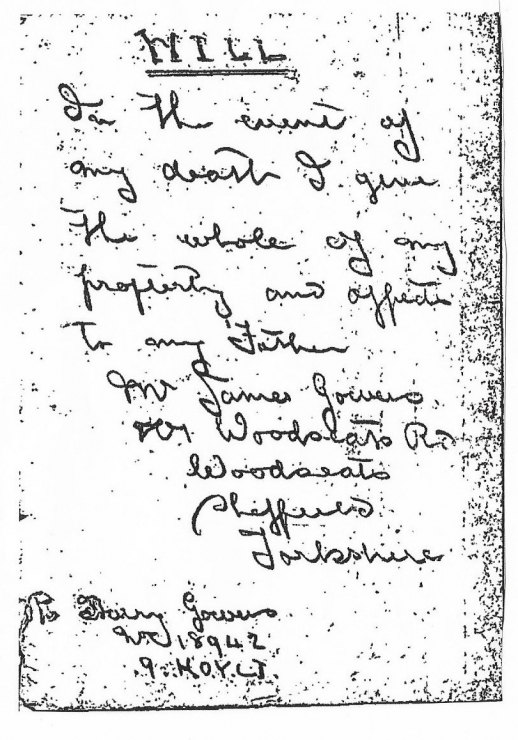 WILL
In the event of
my death I give
the whole of my
property and effects
to my Father
Mr James Gowers.
Woodseats Rd
Woodseats
Sheffield
Yorkshire
Pte Harry Gowers
No 18942
9. KOYLI.